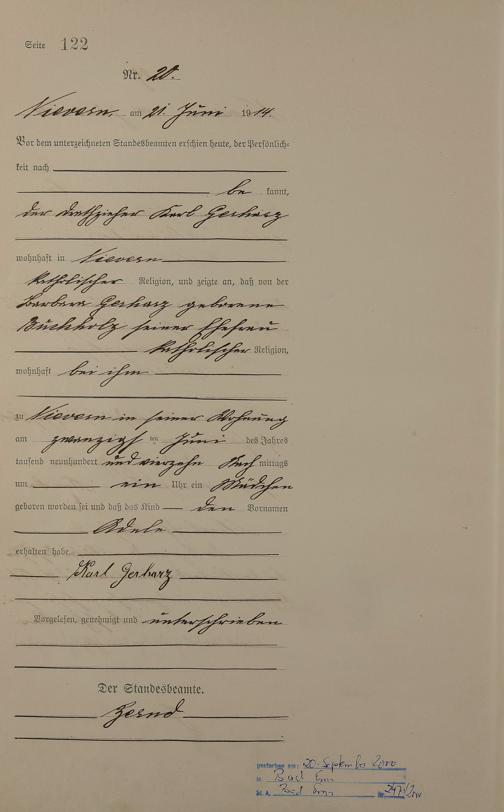 Seite 122
Nr. 20.
Nievern, am 21. Juni 1914.
Vor dem unterzeichneten Standesbeamten erschien heute, der Persönlich-
keit nach
be kannt,
der Drathzieher Karl Gerharz
wohnhaft in Nievern
katholischer Religion, und zeigte an, daß von der
Barbara Gerharz geborene
Buchholz seiner Ehefrau
katholischer Religion,
wohnhaft bei ihm
zu Nievern in seiner Wohnung
am zwanzigsten Juni des Jahres
tausend neunhundert und vierzehn Nach mittags
um ein Uhr ein Mädchen
geboren worden sei und daß das Kind den Vornamen
Adele
erhalten habe.
Karl Gerharz
Vorgelesen, genehmigt und unterschrieben
Der Standesbeamte.
gestorben am: 20. September 2000
in Bad Ems
St. A. Bad Ems Nr.